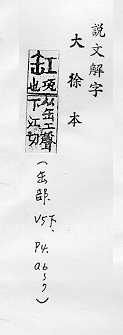 説文解字
大徐本
缸 瓨也从缶工聲下江切
(缶部. V5下. P4.